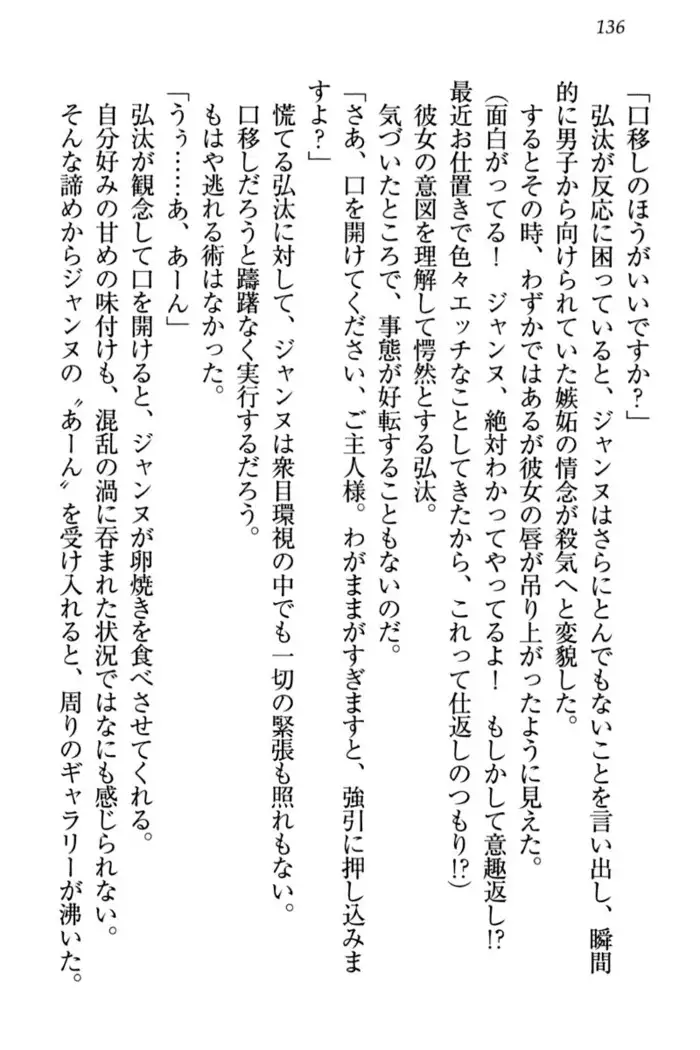 136
「口移しのほうがいいですか？」
　弘汰が反応に困っていると、ジャンヌはさらにとんでもないことを言い出し、瞬間
的に男子から向けられていた嫉妬の情念が殺気へと変貌した。
　するとその時、わずかではあるが彼女の唇が吊り上がったように見えた。
（面白がってる！　ジャンヌ、絶対わかってやってるよ！　もしかして意趣返し!?
最近お仕置きで色々エッチなことしてきたから、これって仕返しのつもり!?）
　彼女の意図を理解して愕然とする弘汰。
　気づいたところで、事態が好転することもないのだ。
「さあ、口を開けてください、ご主人様。わがままがすぎますと、強引に押し込みま
すよ？」
　慌てる弘汰に対して、ジャンヌは衆目環視の中でも一切の緊張も照れもない。
　口移しだろうと躊躇なく実行するだろう。
　もはや逃れる術はなかった。
「うぅ……あ、あーん」
　弘汰が観念して口を開けると、ジャンヌが卵焼きを食べさせてくれる。
　自分好みの甘めの味付けも、混乱の渦に呑まれた状況ではなにも感じられない。
　そんな諦めからジャンヌの〝あーん〟を受け入れると、周りのギャラリーが沸いた。